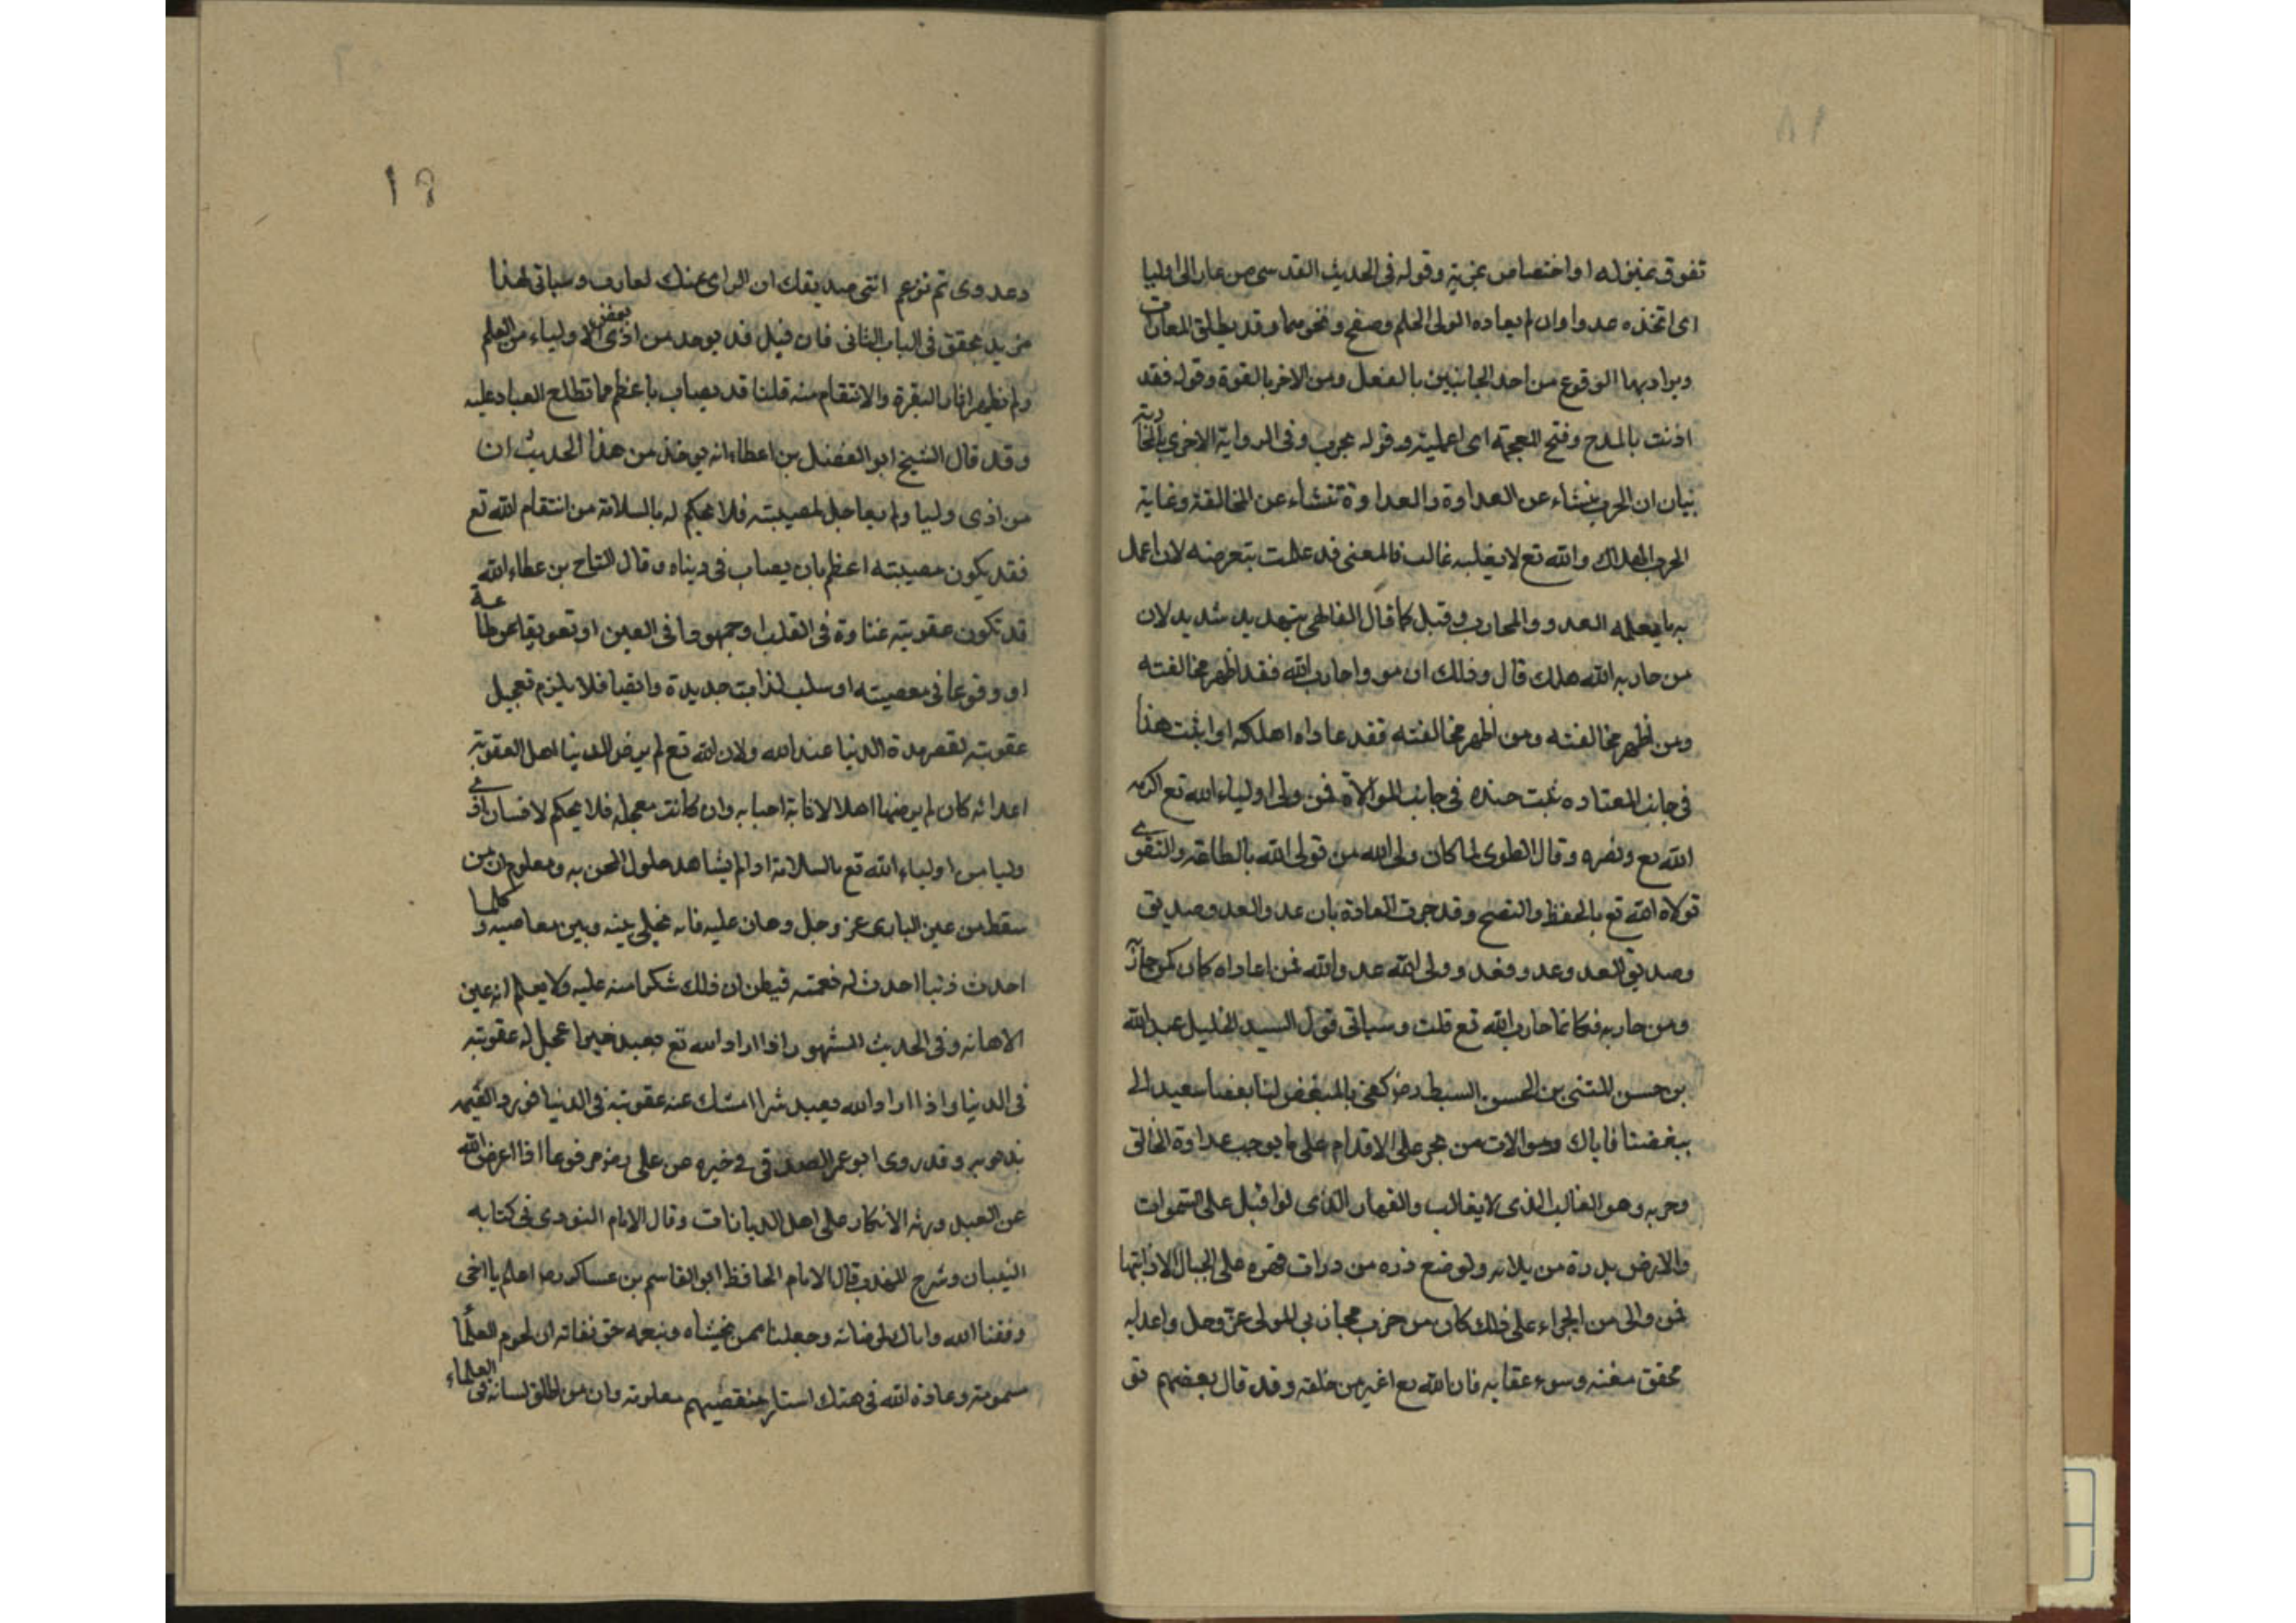 تفوق بمنزله او اختصاص بمزيته وقوله في الحديث القدسي من عادا لى وليا
اى اتخذه عدوا وان لم يعاده الولى الحلم وصفح ونحوهما وقد يطلق المعادات
ويراد بها الوقوع من احد الجانبين بالفعل ومن الاخر بالقوة وقوله فقد
اذنت بالمد وفتح المعجمة اى اعلمته وقوله بحرب وفى الرواية الاخرى بالمحاربة
بيان ان الحرب ينشاء عن العداوة والعداوة تنشاء عن المخالفة وغاية
الحرب الهلاك والله تع لا يغلبه غالب فالمعنى فقد علمت بتعرضه لان اعمل
به ما يعمله العدو والمحارب وقيل كما قال الفاكهى تهديد شديد لان
من حاربه الله هلك قال وذلك ان من واحارب الله فقد اظهر مخالفته
ومن اظهر مخالفته ومن اظهر مخالفته فقد عاداه اهلكه اوا ثبت هذا
فى جانب المعتاده ثبت ضده فى جانب الموالاة فمن ولى اولياء الله تع اكرمه
الله تع ونصره وقال الطوى لما كان ولى الله من تولى الله بالطاعة والتقوى
تولاه الله تع بالحفظ والنصح وقد جرت العادة بان عدو العدو صديق
وصديق العدو عدو فعدو ولى الله عدو الله فمن اعاداه كان كمن حاربه
ومن حاربه فكانما حارب الله تع قلت وسياتى قول السيد الخليل عبد الله
بن حسن المثنى بن الحسن السبط رضى كفى بالمبغض لنا بغضا بعيد الى
ببغضنا فاياك وموالات من يجر على الاقدام على ما يوجب عداوة الخالق
وحربه وهو الغالب الذى لا يغالب والقهار الذى لوا قبل على السموات
والارض بذرة من بلائه ولو ضع ذره من درات قهره على الجبال الاذابتها
فمن والى من الجراء على ذلك كان من حزب مجانبى المولى عز وجل واعدايه
محقق مغنه وسوء عقابه فان الله تع اغير من خلقه وقد قال بعضهم تق
وعدوى ثم تزعم اننى صديقك ان الراى عنك لعازب وسياتى لهذا
مزيد تحقق فى الباب الثانى فان قيل قد يوجد من اذى بعض الاولياء من العلم
ولم يظهر اثار النقرة والانتقام منه قلنا قد يصاب باعظم مما تطلع العباد عليه
وقد قال الشيخ ابو الفضل بن اعطاء انه يوخذ من هذا الحديث ان
من اذى وليا ولم يعاجل لمصيبته فلا يحكم له بالسلامة من انتقام الله تع
فقد يكون مصيبته اعظم بان يصاب فى دينه وقال التاج بن عطاء الله
قد تكون عقوبته غشاوة فى القلب او جمودا فى العين او تعويقا عن طاعة
او وقوعا فى معصيته او سلب لذات جديدة وايضا فلا يلزم تعجيل
عقوبته لقصر مدة الدنيا عند الله ولان الله تع لم يرض الدنيا اهل العقوبة
اعدائه كان لم يرضها اهلا لاثابة احبابه وان كانت معجلة فلا يحكم لانسان اذى
وليا من اولياء الله تع بالسلامة اذا لم يشاهد حلول المحن به ومعلوم ان من
سقط من عين البارى عز وجل وهان عليه فانه يخلى بينه وبين معاصيه وكلما
احدث ذنبا احدث له نعمته فيظن ان ذلك شكرا منه عليه ولا يعلم انه عين
الاهانه وفى الحديث المشهور اذا اراد الله تع بعبد خيرا عجل له عقوبته
فى الدنيا واذا اراد الله بعبد شرا امسك عنه عقوبته فى الدنيا فيرد القيمه
بذنوبه وقد روى ابو عمر الصدفى فى خبره عن على رضى مرفوعا اذا اعرض الله
عن العبد ورثه الانكار على اهل الديانات وقال الامام النووى فى كتابه
التبيان وشرح المهذب قال الامام الحافظ ابو القاسم بن عساكر رح اعلم يا اخى
وفقنا الله واياك لمرضاته وجعلنا ممن يخشاه ويتقه حق تقاته ان لحوم العلما
مسمومة وعادة الله فى هتك استار منتقصيهم معلومة وان من اطلق لسانه فى العلماء